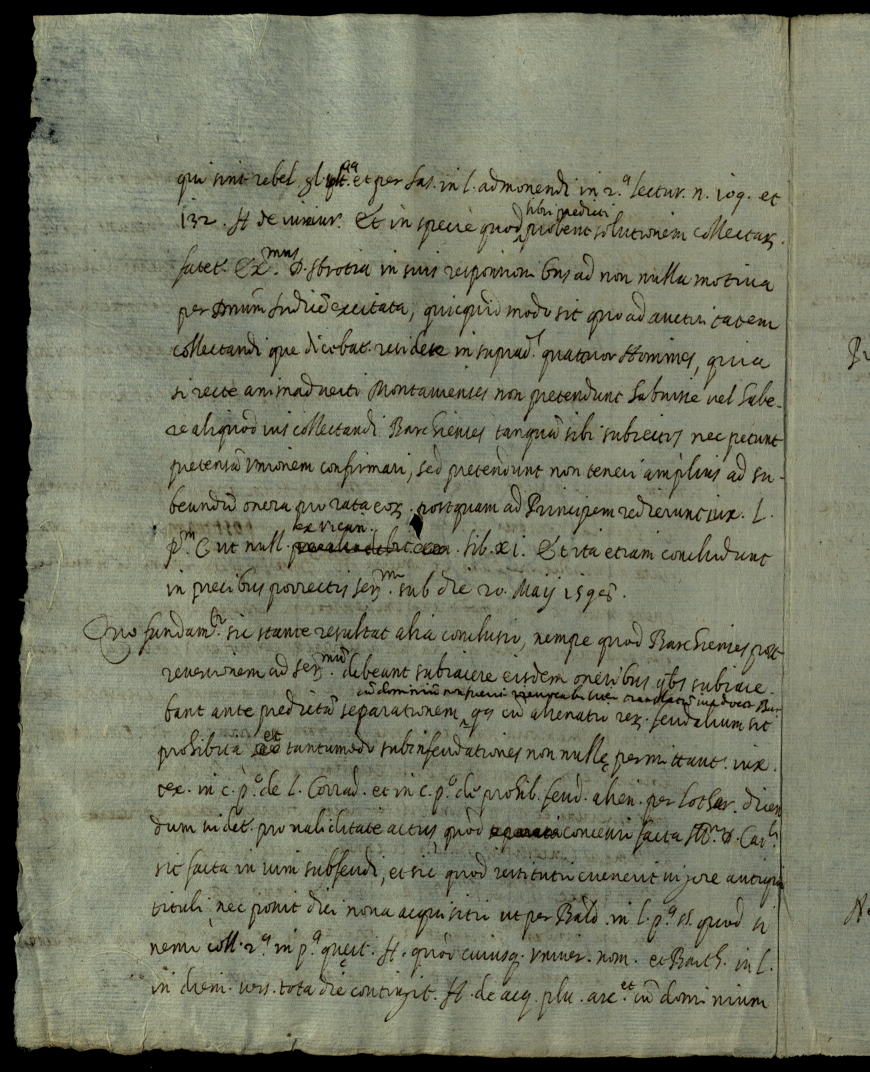 qui sint rebel. et per Jas. in l. admonendi in 2.ª lectur. n. 109. et
libri prediti
132. ff de iureiur. Et in specie quod probent solutionem collectarꝫ.
fatet. Ex.mus D. Strotia in suis responsionibus ad non nulla motiva
per Dnum Judicẽ excitata, quicquid modo sit quo ad auctoritatem
collectandi que dicebat. residere in suprad. quatuor Homines, quia
si recte animadverti Montanienses non pretendunt habuisse vel habe-
re aliquod ius collectandi Barchienses tanquã sibi subiectis nec petunt
pretensã Unionem confirmari, sed pretendunt non teneri amplius ad su-
beundũ onera pro rata eoꝝ. postquam ad Principem redierunt iux. L.
ex vican.
p.m C ut null. lib. XI. Et ita etiam concludunt
in precibus porrectis ser.m sub die 20. Maij 1598.
Quo fundam.to sic stante resultat alia conclusio, nempe quod Barchienses post
reversionem ad ser.mum debeant subiacere eisdem oneribus qbs subiace-
cũ dominiũ non fuerit
bant ante predictã separationem, cũ alienatio reꝝ. feudalium sit
prohibita et tantumodo subinfeudationes non nullę permittant. iux.
tex. in c. p.º de l. Corrad. et in c. p.º de prohib. feud. alien. per Lothar. dicen
dum videt. pro validitate actus quod concessio facta Ill. D. Car.
sit facta in vim subfeudi, et sic quod restitutio evenerit in jure antiqui
tituli nec possit dici nova acquisitio ut per Bald. in l. p.ª si quod si
nemi coll. 2.ª in p.ª quęst. ff. quod cuiusq. univer. nom. et Barth. in l.
in diem. vers. tota die contingit. ff. de aq. plu. arc. et cũ dominium